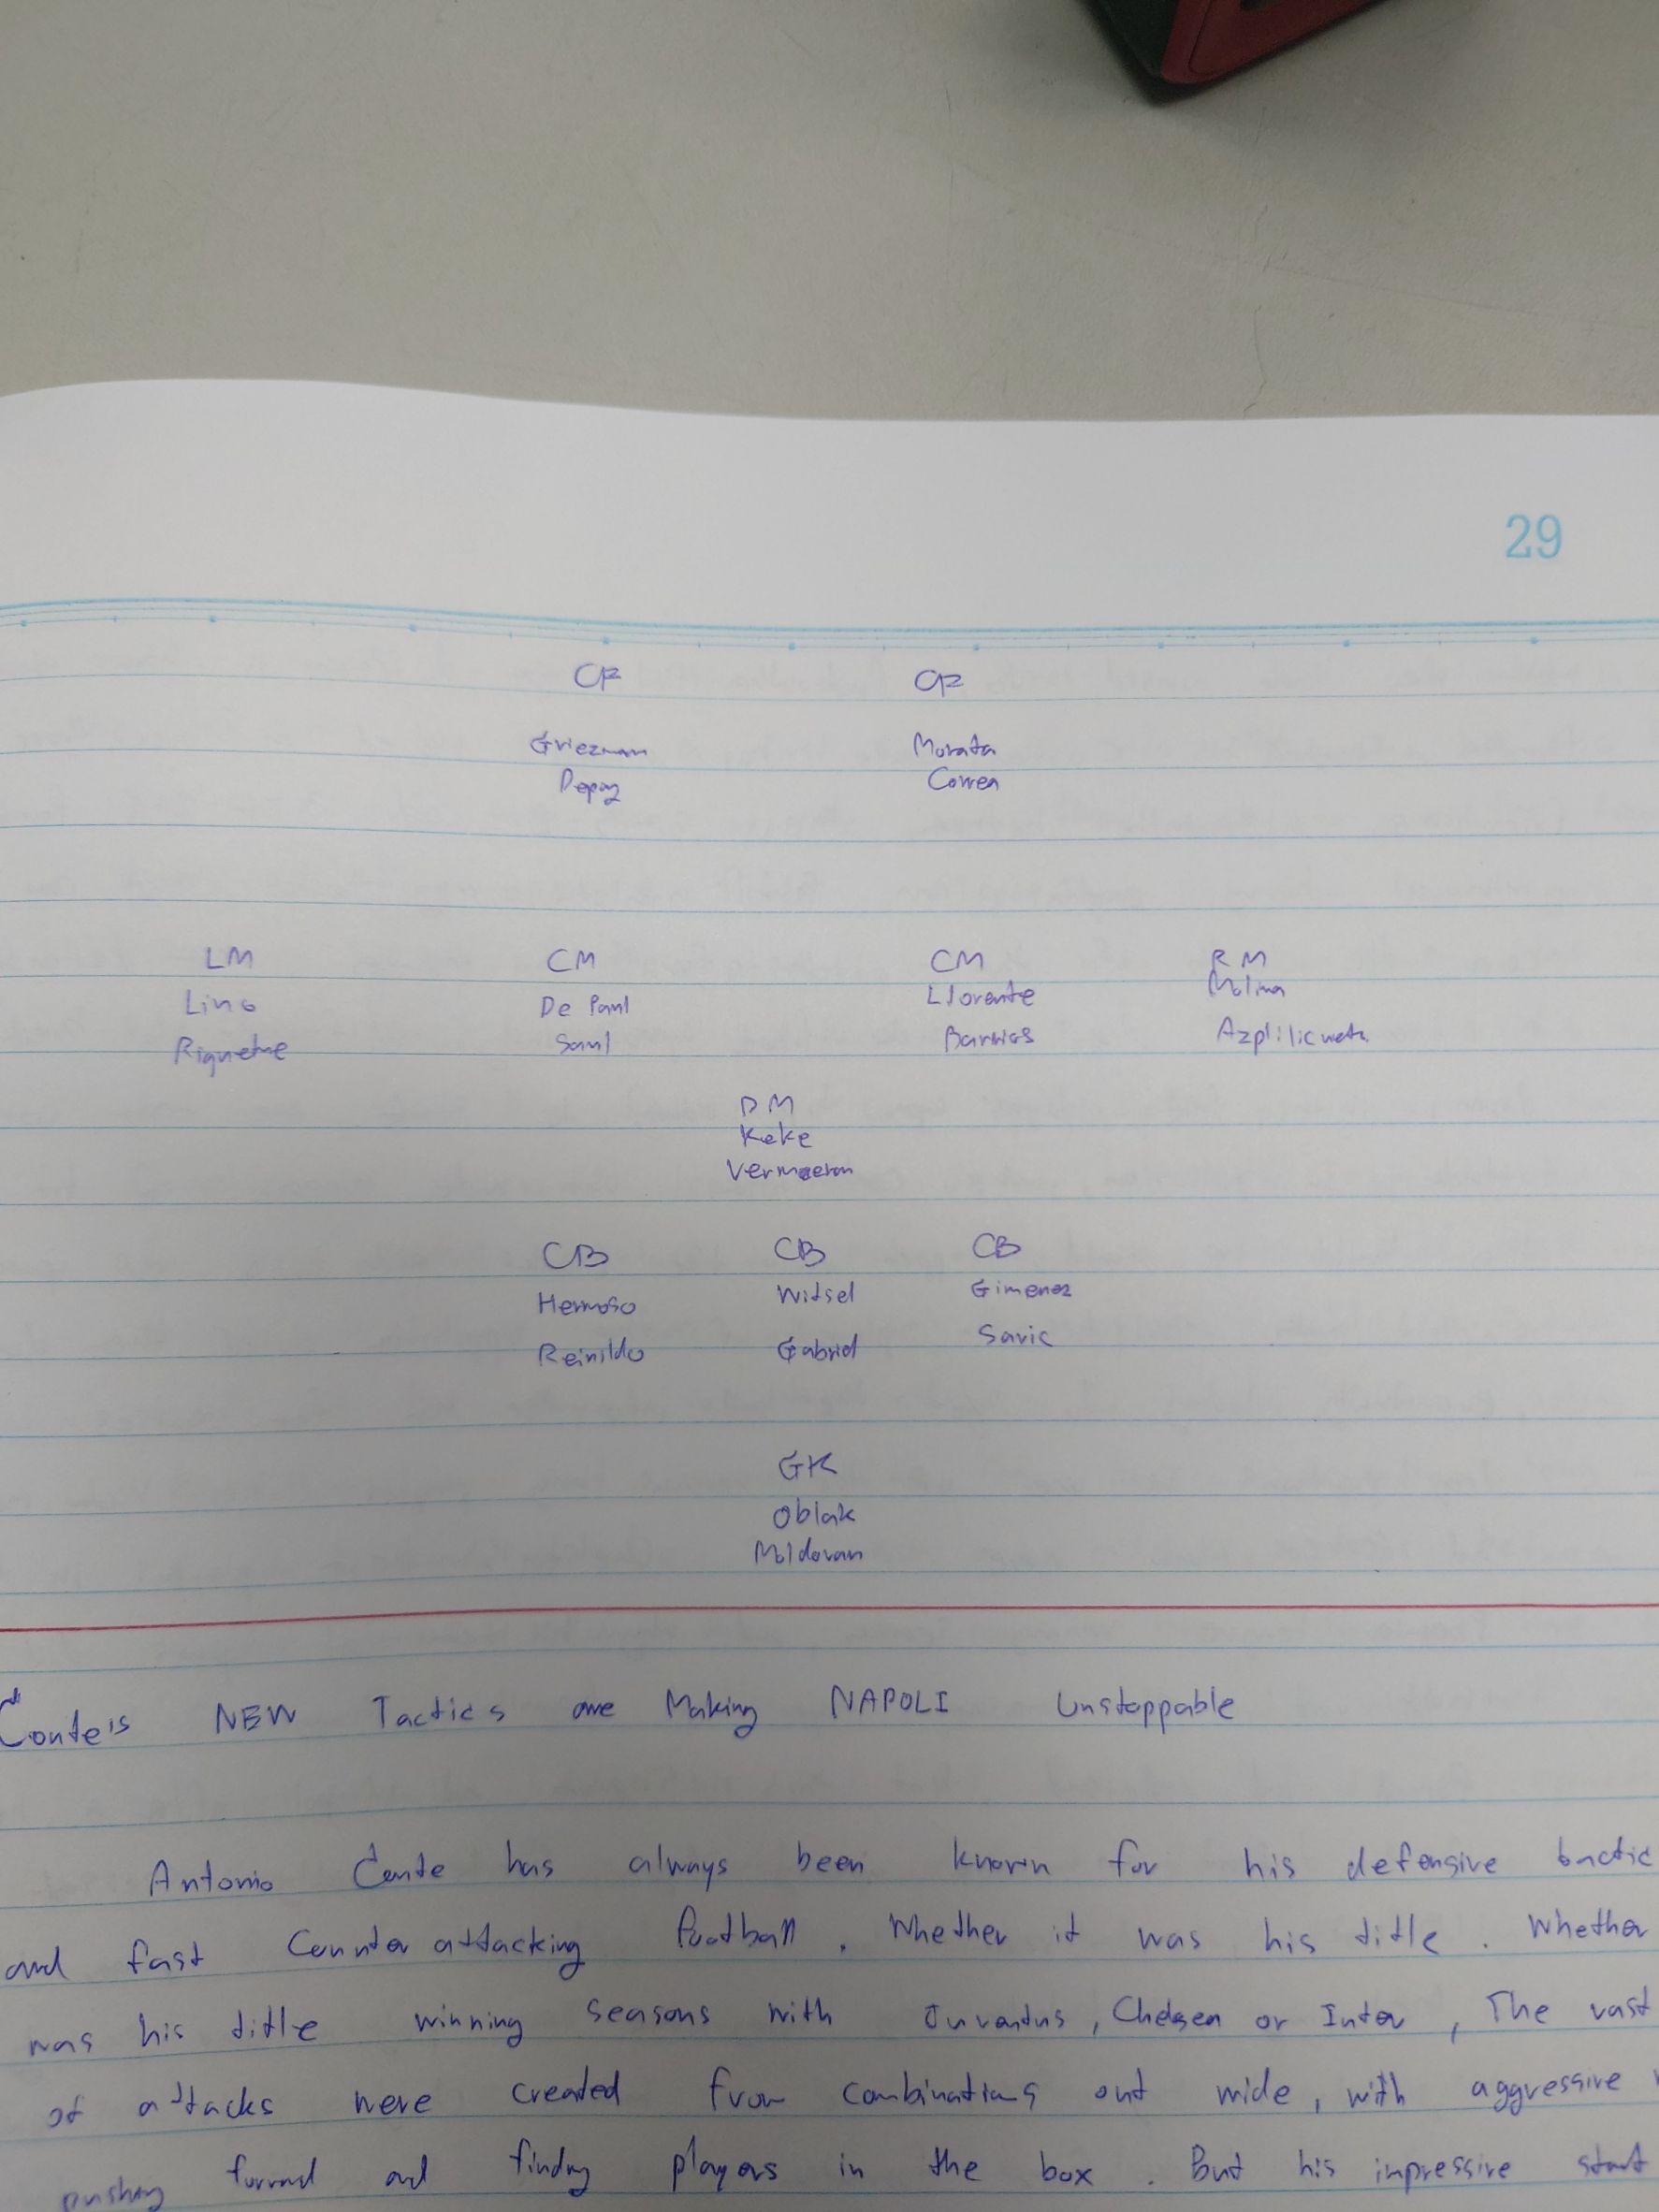 29
CF CF
Griezman Morata
Depay Correa
LM CM CM RM
Lino De Paul Llorente Molina
Riquelme Saul Barrios Azplilicueta
DM
Koke
Vermaeren
CB CB CB
Hermoso Witsel Gimenez
Reinildo Gabriel Savic
GK
Oblak
Moldovan
Conte's NEW Tactics are Making NAPOLI Unstoppable
Antonio Conte has always been known for his defensive tactic
and fast Counter attacking football. Whether it was his title. Whether
was his title winning seasons with Juventus, Chelsea or Inter, The vast
of attacks were created from combinations out wide, with aggressive
pushing forward and finding players in the box. But his impressive start